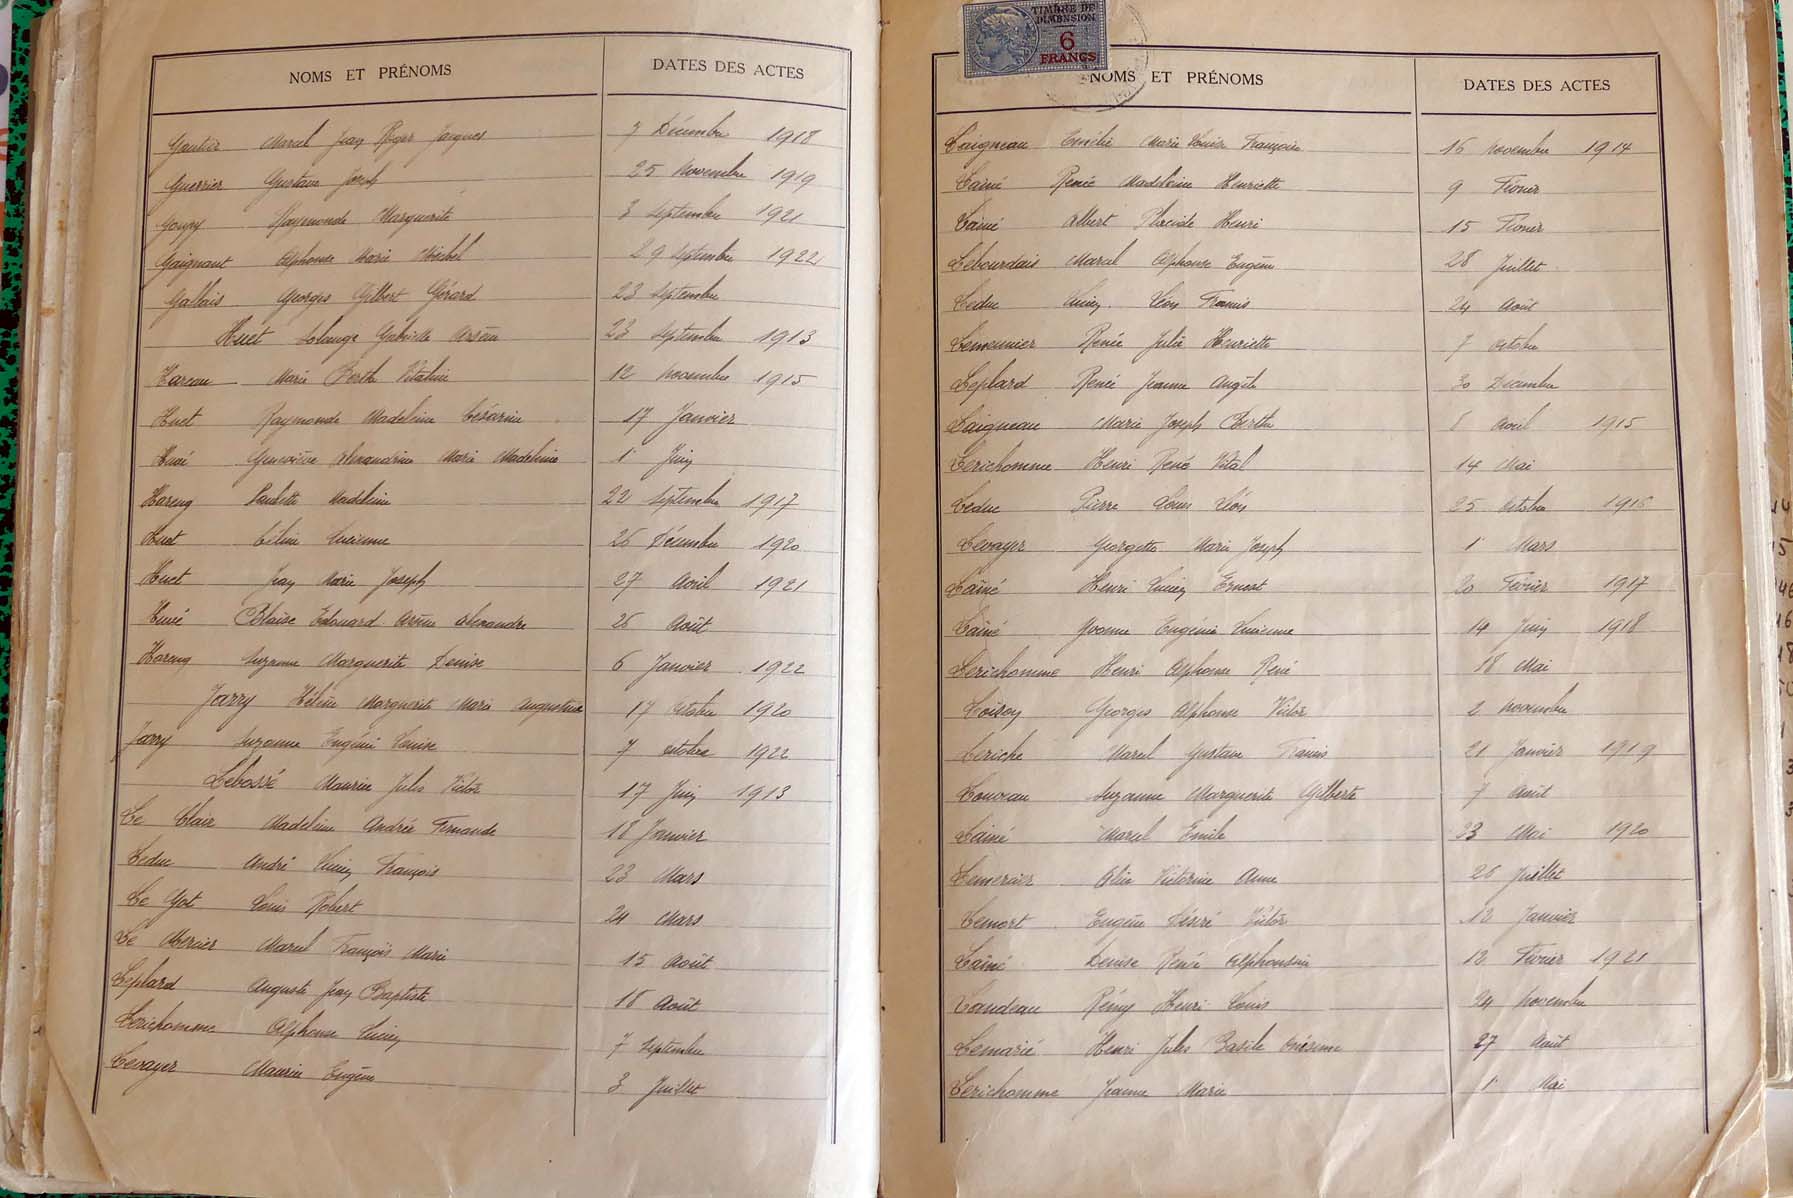 NOMS ET PRÉNOMS DATES DES ACTES
Gautier Marcel Jean Roger Jacques 7 Décembre 1918
Guerrier Gustave Joseph 25 Novembre 1919
Goupy Raymonde Marguerite 3 Septembre 1921
Gaignant Alphonse Marie Michel 29 Septembre 1922
Gallais Georges Gilbert Gérard 23 Septembre
Huet Solange Gabrielle Arsène 23 Septembre 1913
Hareau Marie Berthe Vitaline 12 Novembre 1915
Huet Raymonde Madeleine Césarine 17 Janvier
Geneviève Alexandrine Marie Madeleine 1er Juin
Hareng Paulette Madeleine 22 Septembre 1917
Huet Céline Lucienne 26 Décembre 1920
Huet Jean Marie Joseph 27 Avril 1921
Huvé Blaise Edouard Arsène Alexandre 26 Août
Hareng Suzanne Marguerite Denise 6 Janvier 1922
Jarry Hélène Marguerite Marie Augustine 17 Octobre 1920
Jarry Suzanne Eugénie Louise 7 Octobre 1922
Lebossé Maurice Jules Victor 17 Juin 1913
Le Clair Madeleine Andrée Fernande 18 Janvier
Leduc André Lucien François 23 Mars
Le Got Louis Robert 24 Mars
Le Mercier Marcel François Marie 15 Août
Leplard Auguste Jean Baptiste 18 Août
Lerichomme Alphonse Lucien 7 Septembre
Levayer Maurice Eugène 3 Juillet
TIMBRE DE DIMENSION
6 FRANCS
NOMS ET PRÉNOMS DATES DES ACTES
Laigneau Emilie Marie Louise Françoise 16 Novembre 1914
Lainé Renée Madeleine Henriette 9 Février
Lainé Albert Placide Henri 15 Février
Lebourdais Marcel Alphonse Eugène 28 Juillet
Leduc Lucien Léon Francis 24 Août
Lemeunier Renée Julia Henriette 7 Octobre
Leplard Renée Jeanne Angèle 30 Décembre
Laigneau Marie Joseph Berthe 8 Avril 1915
Lerichomme Henri René Vital 14 Mai
Leduc Pierre Louis Léon 25 Octobre 1916
Levayer Georgette Marie Joseph 1er Mars
Lainé Henri Lucien Ernest 20 Février 1917
Lainé Yvonne Eugénie Lucienne 14 Juin 1918
Lerichomme Henri Alphonse René 18 Mai
Loison Georges Alphonse Victor 2 Novembre
Leriche Marcel Gustave Francis 21 Janvier 1919
Louveau Suzanne Marguerite Gilberte 7 Août
Lainé Marcel Emile 23 Mai 1920
Lemercier Victorine Anne 26 Juillet
Lemort Eugène Désiré Victor 12 Janvier
Lainé Denise Renée Alphonsine 12 Février 1921
Landeau Rémy Henri Louis 24 Novembre
Lemarié Henri Jules Basile Onésime 27 Août
Lerichomme Jeanne Marie 1er Mai